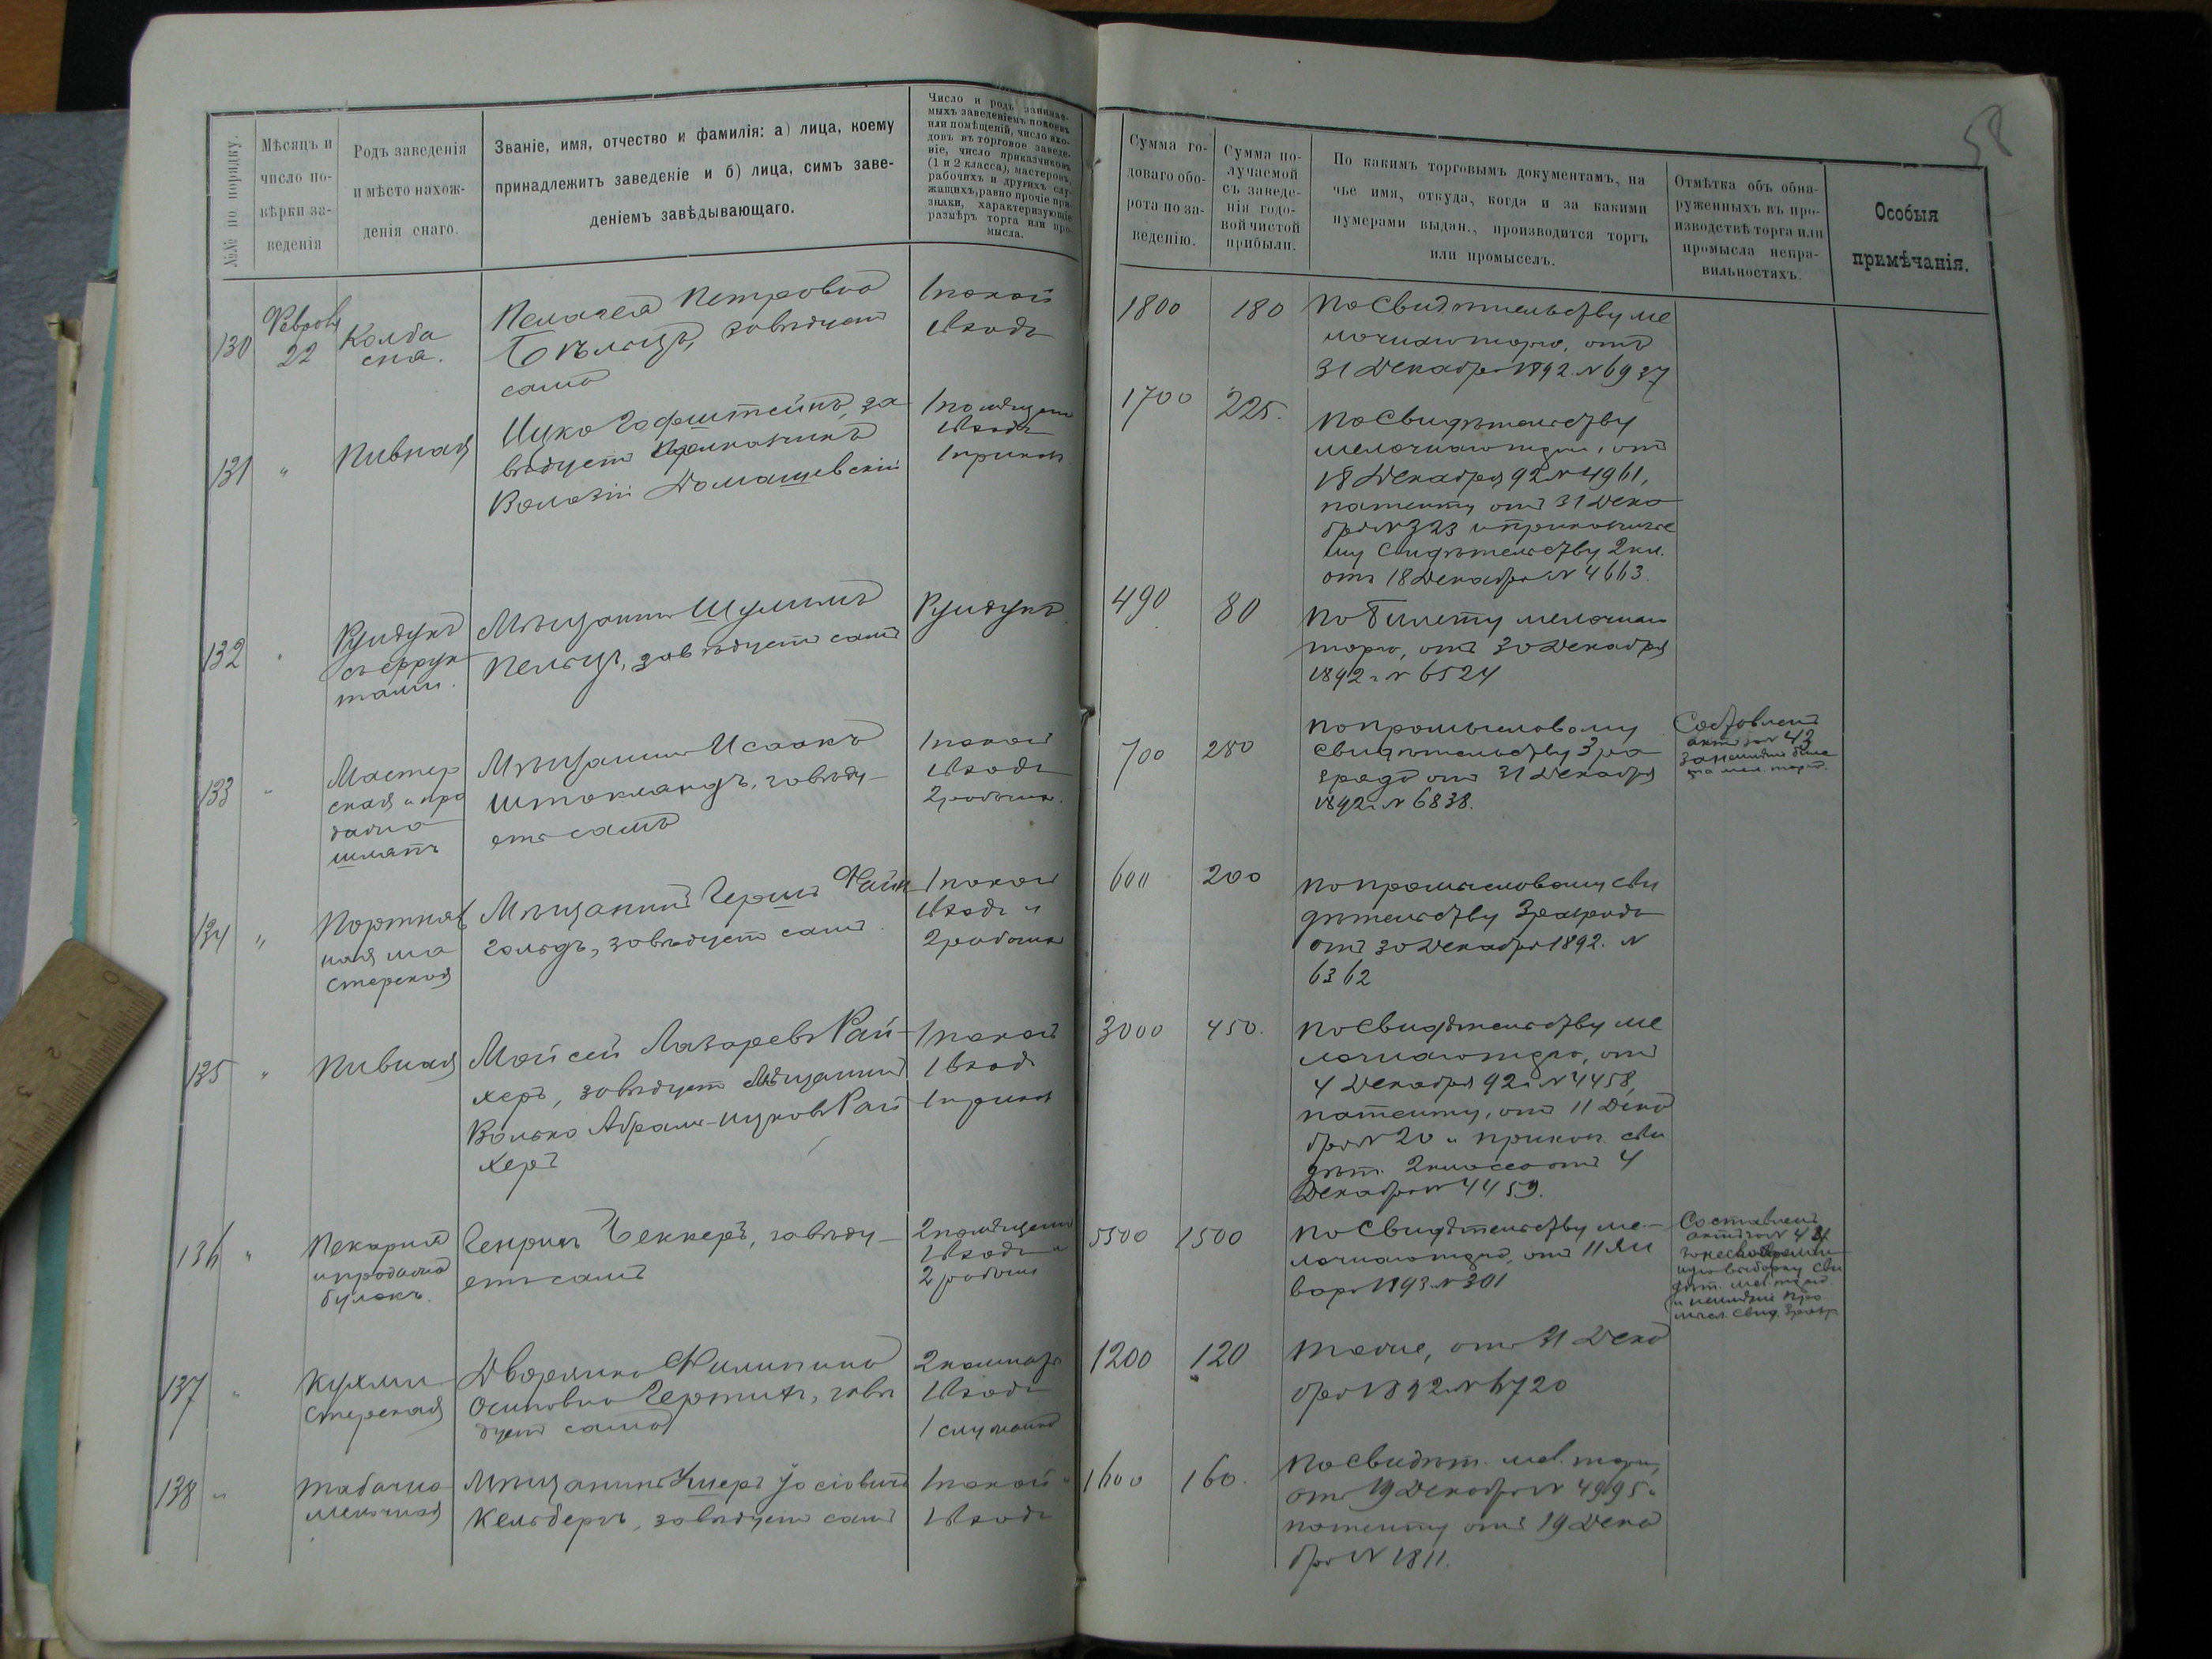 58
№№ по порядку.
Мѣсяцъ и
число по-
вѣрки за-
веденія
Родъ заведенія
и мѣсто нахож-
денія онаго.
Званіе, имя, отчество и фамилія: а) лица, коему
принадлежитъ заведеніе и б) лица, симъ заве-
деніемъ завѣдывающаго.
Число и родъ занимае-
мыхъ заведеніемъ покоевъ
или помѣщеній, число вхо-
довъ въ торговое заведе-
ніе, число приказчиковъ
(1 и 2 класса), мастеровъ,
рабочихъ и другихъ слу-
жащихъ, равно прочіе при-
знаки, характеризующіе
размѣръ торга или про-
мысла.
Сумма го-
доваго обо-
рота по за-
веденію.
Сумма по-
лучаемой
съ заведе-
нія годо-
вой чистой
прибыли.
По какимъ торговымъ документамъ, на
чье имя, откуда, когда и за какими
нумерами выдан., производится торгъ
или промыселъ.
Отмѣтка объ обна-
руженныхъ въ про-
изводствѣ торга или
промысла непра-
вильностяхъ.
Особыя
примѣчанія.
130
Февраля
22
Колба
сна.
Пелагея Петровна
завѣдуетъ
сама
1 покой
1 входъ
1800
180
По свидѣтельству ме
лочнаго торга, отъ
31 Декабря 1892 г. № 6937
131
"
Пивная
Ицко Гофштейнъ, за
вѣдуетъ прикащикъ
Домашевскій
1 помѣщен
1 входъ
1 приказ.
1700
225.
По свидѣтельству
мелочнаго торга, отъ
18 Декабря 92 № 4961,
патенту отъ 31 Дека
бря № 323 и приказчичье
му свидѣтельству 2 кл.
отъ 18 Декабря № 4663.
132
"
Рундукъ
съ фрук
тами.
Мѣщанинъ Шулимъ
Пельцъ, завѣдуетъ самъ
Рундукъ
490
80
По билету мелочнаго
торга, отъ 30 Декабря
1892 г. № 6524
133
"
Мастер
ская и про
дажа
шляпъ
Мѣщанинъ Исаакъ
Штокландъ, завѣду-
етъ самъ
1 покой
1 входъ
2 рабочих.
700
280
По промысловому
свидѣтельству 3 ра
зряда отъ 31 Декабря
1892 г. № 6838.
Составленъ
актъ за № 43
за неимѣніе биле
та мел. торг.
134
"
Портнов
ная ма
стерская
Мѣщанинъ Гершъ Файн
гольдъ, завѣдуетъ самъ.
1 покой
1 входъ и
2 рабочих
600
200
По промысловому сви
дѣтельству 3 разряда
отъ 30 Декабря 1892. №
6362
135
"
Пивная
Мойсей Лазаревъ Рай-
херъ, завѣдуетъ мѣщанинъ
Волько Абрамъ-Ицковъ Рай
херъ
1 покой
1 входъ
1 приказ
3000
450.
По свидѣтельству ме
лочнаго торга, отъ
4 Декабря 92 г. № 4458,
патенту, отъ 11 Дека
бря № 20 и приказ. сви
дѣт. 2 класса отъ 4
Декабря № 4459.
136
"
Пекарня
и продажа
булокъ.
Генрихъ Беккеръ, завѣду-
етъ самъ
2 помѣщенія
1 входъ и
2 рабочих
5500
1500
По свидѣтельству ме-
лочнаго торга, отъ 11 Ян
варя 1893 № 301
Составленъ
актъ за №
за несвоевремен
ную выборку сви
дѣт. мел. торг.
и неимѣніе про
мысл. свид. 3 разр
137
"
Кухми
стерская
Дворянка Филипина
Осиповна завѣ
дуетъ сама
2 комнаты
1 входъ
1 служащ
1200
120
Тоже, отъ 31 Дека
бря 1892 № 6720
138
"
Табачно
мелочная
Мѣщанинъ Ушеръ Іосіовичъ
Кельберъ, завѣдуетъ самъ
1 покой и
1 входъ
1600
160.
По свидѣт. мел. торг.,
отъ 19 Декабря № 4995 и
патенту отъ 19 Дека
бря № 1811.